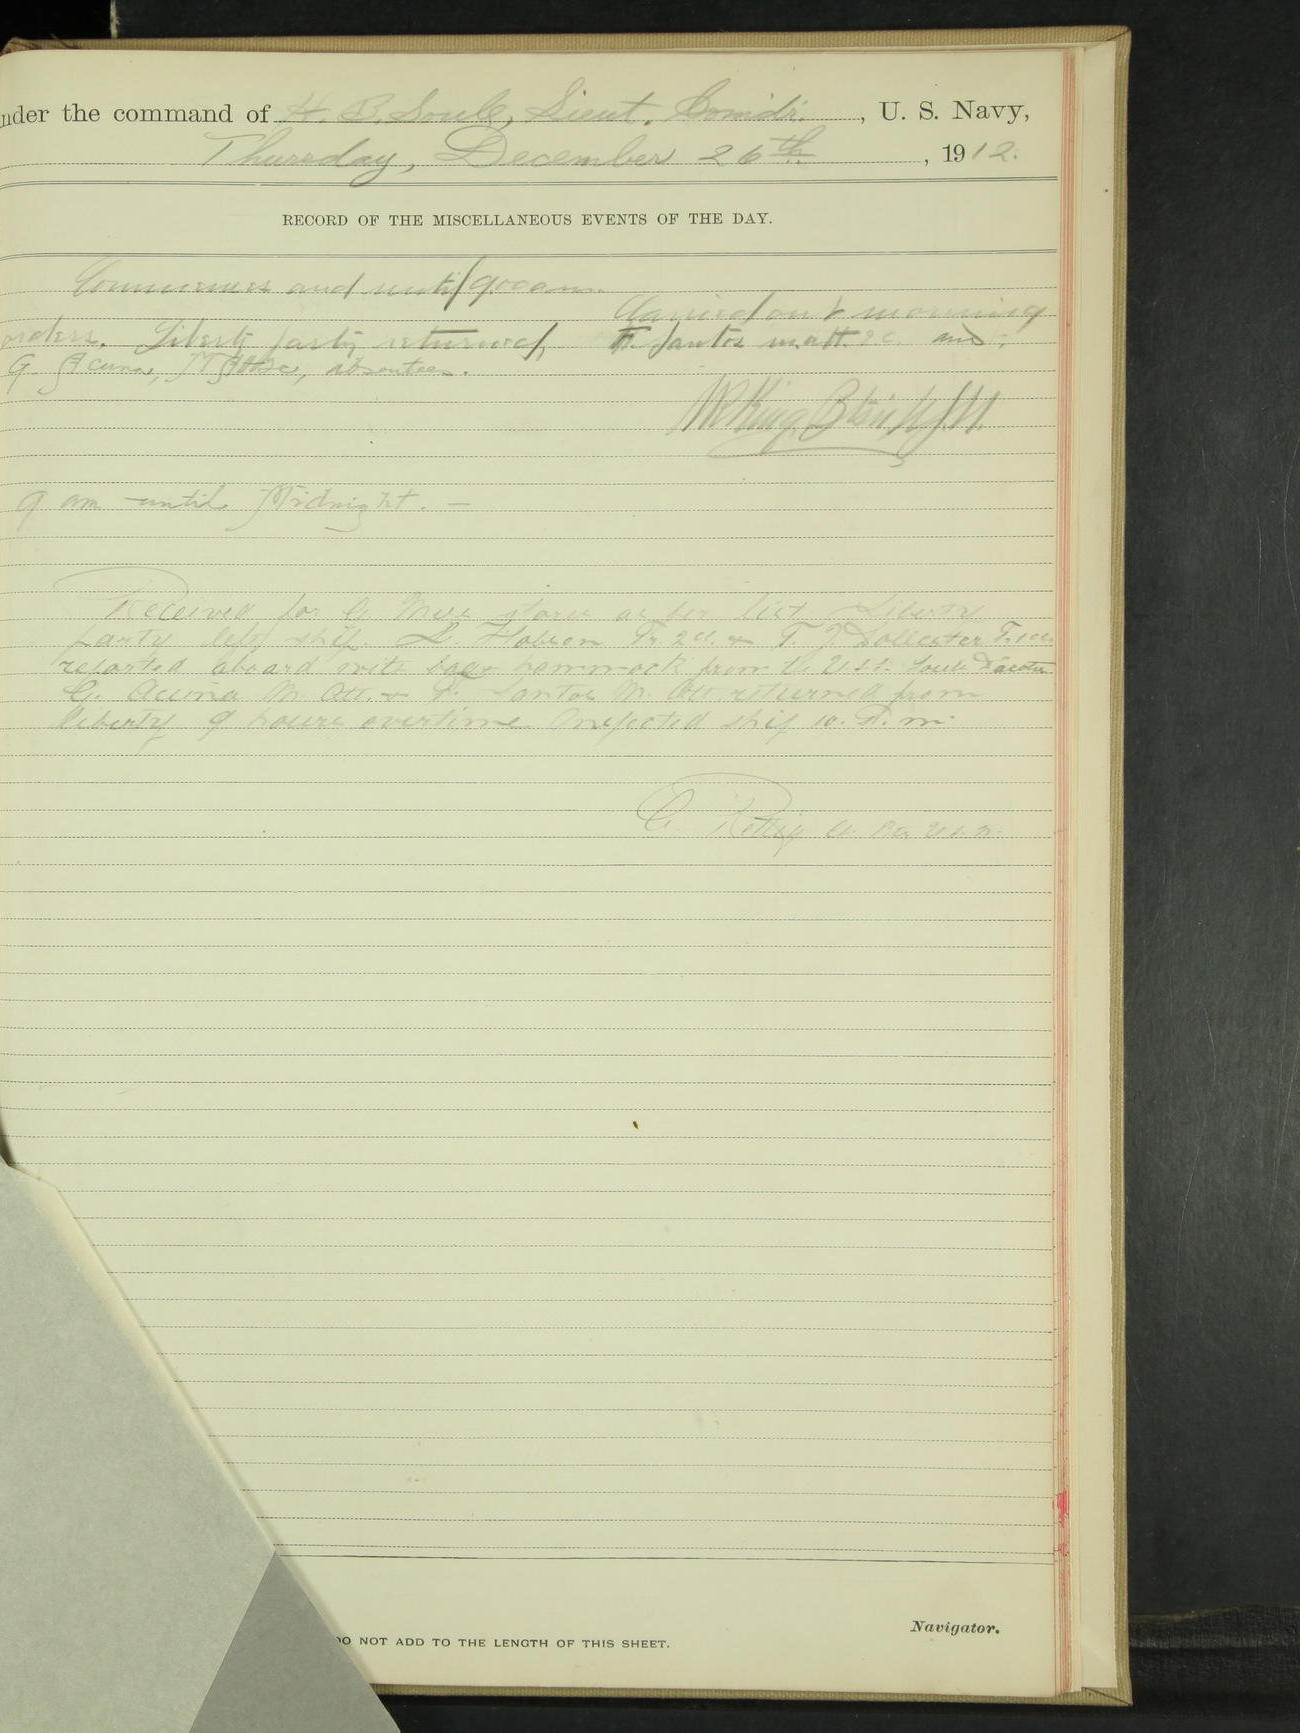 nder the command of H. B. Soule, Lieut. Comdr. , U. S. Navy,
Thursday, December 26th , 1912.
RECORD OF THE MISCELLANEOUS EVENTS OF THE DAY.
Commences and until 9:00 am.
Carried out morning
orders. Liberty party returned, F. Santos matt. 3c. and
G. Acuna, M Att 3c, absentees.
9 am until Midnight. —
Received for G. Mess stores as per list. Liberty
party left ship. L. Hobson Fr. 2cl. & T. J.
reported aboard with bag & hammock from the U.S.S. South Dacota
G. Acuna M. Att. & F. Santos M. Att. returned from
liberty 9 hours overtime Inspected ship 10. P. m.
C. Rettig U.S.N.
Navigator.
DO NOT ADD TO THE LENGTH OF THIS SHEET.